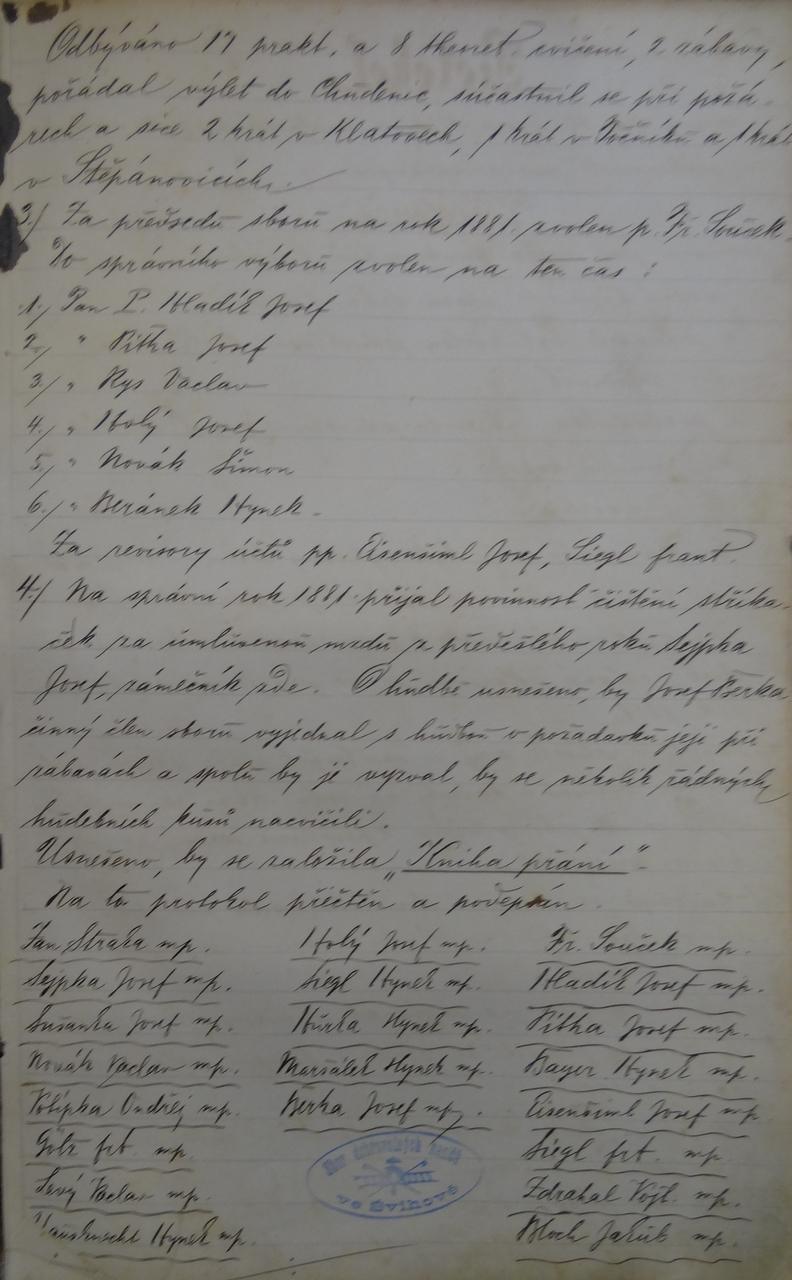 Odbýváno 17 prakt. a 8 theoret. cvičení, 2 zábavy,
pořádal výlet do Chudenic, súčastnil se při požá-
rech a sice 2 krát v Klatovech, 1 krát v Točníku a 1 krát
v Štěpánovicích.
3./ Za předsedu sboru na rok 1881. zvolen p. Fr. Souček.
Do správního výboru zvolen na ten čas:
1./ Pan P. Hladík Josef
2./ " Pitka Josef
3./ " Rys Václav
4./ " Holý Josef
5./ " Novák Šimon
6./ " Beránek Hynek.
Za revisory účtů pp. Eisenšiml Josef, Siegl frant.
4./ Na správní rok 1881. přijal povinnosť čištění stříka-
ček za umluvenou mzdu z předešlého roku Sejpka
Josef, zámečník zde. O hudbě usnešeno, by Josef Berka
činný člen sboru vyjednal s hudbou v požadavku její při
zábavách a spolu by je vyzval, by se několik řádných
hudebních kusů nacvičili.
Usnešeno, by se založila „Kniha přání“.
Na to protokol přečtěn a podepsán.
Jan Straka mp. Holý Josef mp. Fr. Souček mp.
Sejpka Josef mp. Siegl Hynek mp. Hladík Josef mp.
Sušanka Josef mp. Hurka Hynek mp. Pitka Josef mp.
Novák Václav mp. Maršálek Hynek mp. Bayer Hynek mp.
Potípka Ondřej mp. Berka Josef mp. Eisenšiml Josef mp.
Götz frt. mp. Siegl frt. mp.
Savý Václav mp. Zdrahal Vojt. mp.
Hynek mp. Bloch Jakub mp.
Sbor dobrovolných hasičů
ve Svihově